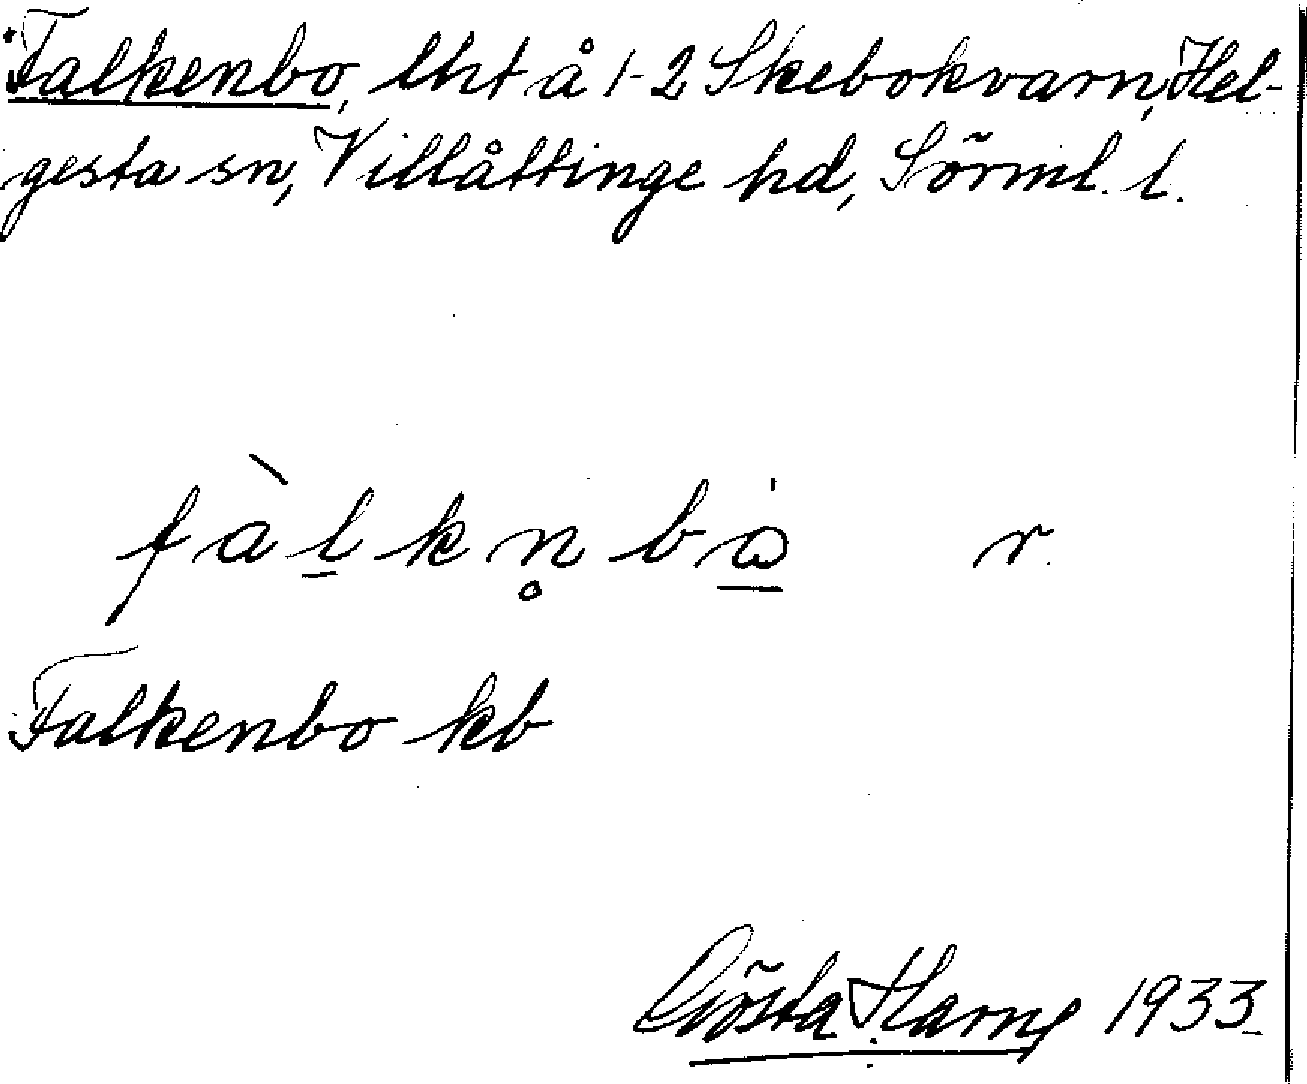 Falkenbo, lht å 1-2 Skebokvarn, Hel-
gesta sn, Villåttinge hd, Sörml. l.
fàl̠kn̥bå̠ r.
Falkenbo kb
Gösta Harne 1933